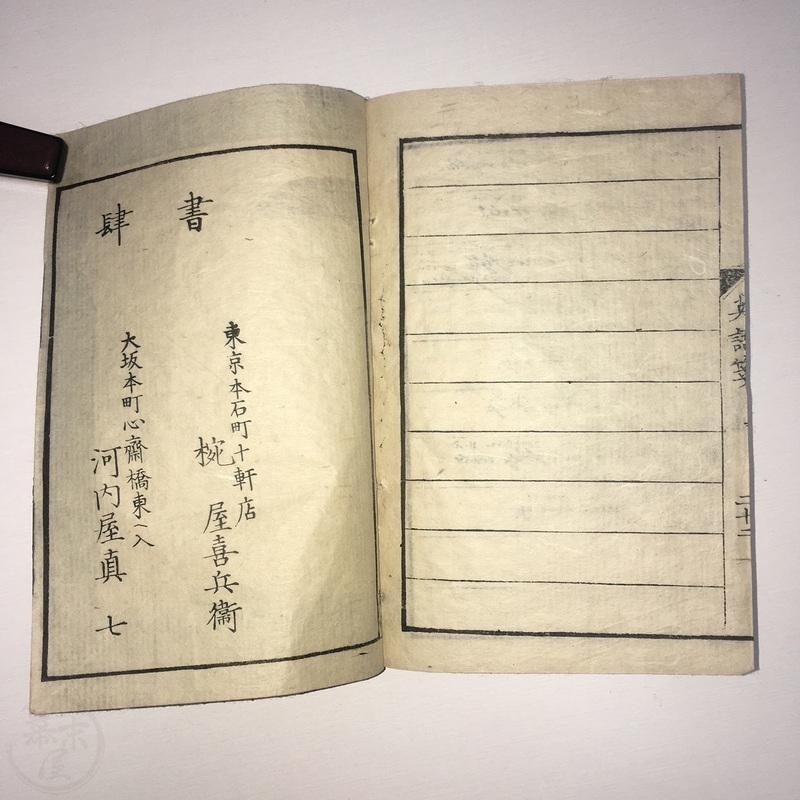 英語箋
二十二
書肆
東京本石町十軒店
椀屋喜兵衞
大坂本町心齋橋東ヘ入
河内屋真七